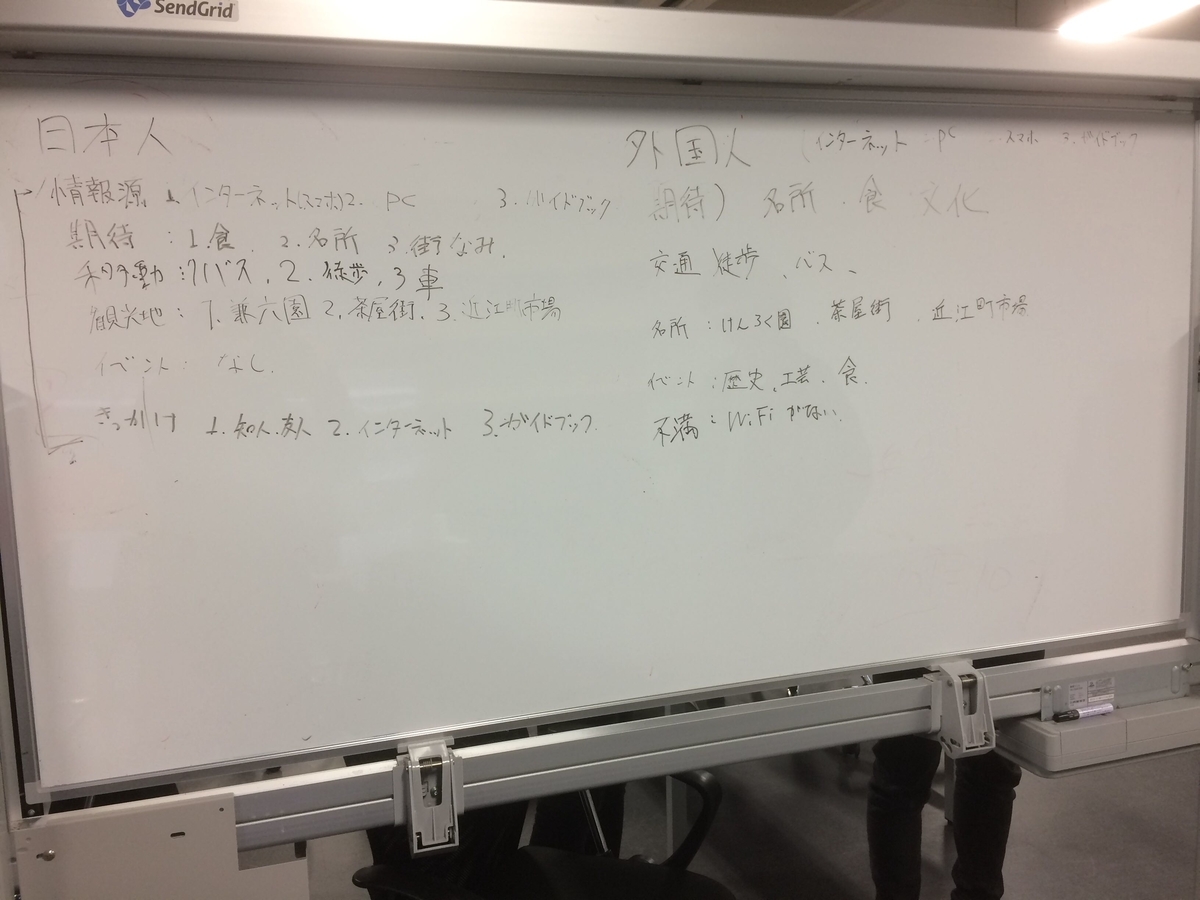 SendGrid
日本人
情報源 1. インターネット(スマホ) 2. PC 3. ガイドブック
期待 : 1.食. 2.名所 3.街なみ.
移動 : 1バス, 2. 徒歩, 3 車
観光地 : 1. 兼六園 2. 茶屋街. 3. 近江町市場
イベント : なし.
きっかけ 1. 知人.友人 2. インターネット 3. ガイドブック.
外国人 (インターネット : PC スマホ 3. ガイドブック
期待) 名所 . 食 文化
交通 徒歩 、バス、
名所 : けんろく園 . 茶屋街 . 近江町市場
イベント : 歴史、工芸、食.
不満 : WiFiがない.